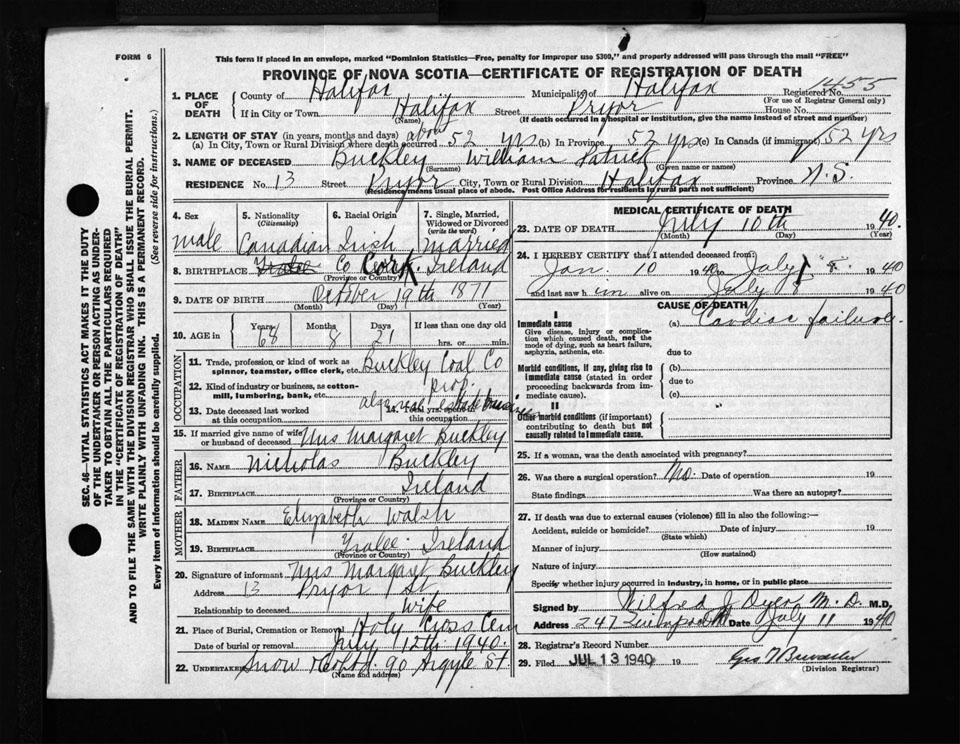 FORM 6
This form if placed in an envelope, marked "Dominion Statistics—Free, penalty for improper use $300," and properly addressed will pass through the mail "FREE"
PROVINCE OF NOVA SCOTIA—CERTIFICATE OF REGISTRATION OF DEATH
SEC. 46—VITAL STATISTICS ACT MAKES IT THE DUTY
OF THE UNDERTAKER OR PERSON ACTING AS UNDER-
TAKER TO OBTAIN ALL THE PARTICULARS REQUIRED
IN THE "CERTIFICATE OF REGISTRATION OF DEATH"
AND TO FILE THE SAME WITH THE DIVISION REGISTRAR WHO SHALL ISSUE THE BURIAL PERMIT.
WRITE PLAINLY WITH UNFADING INK. THIS IS A PERMANENT RECORD.
Every item of information should be carefully supplied. (See reverse side for instructions.)
1. PLACE OF DEATH County of Halifax Municipality of Halifax Registered No. 1455
(For use of Registrar General only)
If in City or Town Halifax Street Pryor House No.
(Name) (If death occurred in a hospital or institution, give the name instead of street and number)
2. LENGTH OF STAY (in years, months and days)
(a) In City, Town or Rural Division where death occurred about 52 yrs. (b) In Province 52 yrs (c) In Canada (if immigrant) 52 yrs
3. NAME OF DECEASED Buckley William Patrick
(Surname) (Given name or names)
RESIDENCE No. 13 Street Pryor City, Town or Rural Division Halifax Province N.S.
(Residence means usual place of abode. Post Office Address for residents in rural parts not sufficient)
4. Sex male
5. Nationality (Citizenship) Canadian
6. Racial Origin Irish
7. Single, Married, Widowed or Divorced (write the word) Married
8. BIRTHPLACE Co Cork Ireland
(Province or Country)
9. DATE OF BIRTH October 19th 1871
(Month) (Day) (Year)
10. AGE in Years 68 Months 8 Days 21 If less than one day old hrs. or min.
OCCUPATION
11. Trade, profession or kind of work as spinner, teamster, office clerk, etc. Buckley Coal Co
12. Kind of industry or business, as cotton-mill, lumbering, bank, etc. prop.
also real estate business
13. Date deceased last worked at this occupation
14. Total yrs. spent in this occupation
15. If married give name of wife or husband of deceased Mrs Margaret Buckley
FATHER
16. NAME Nicholas Buckley
17. BIRTHPLACE Ireland
(Province or Country)
MOTHER
18. MAIDEN NAME Elizabeth Walsh
19. BIRTHPLACE Tralee Ireland
(Province or Country)
20. Signature of informant Mrs Margaret Buckley
Address 13 Pryor St
Relationship to deceased wife
21. Place of Burial, Cremation or Removal Holy Cross Cem
Date of burial or removal July 12th 1940.
22. UNDERTAKER Snow 90 Argyle St.
(Name and address)
MEDICAL CERTIFICATE OF DEATH
23. DATE OF DEATH July 10th 1940
(Month) (Day) (Year)
24. I HEREBY CERTIFY that I attended deceased from:
Jan. 10 1940 to July 8. 1940
and last saw him alive on July 8 1940
CAUSE OF DEATH
I
Immediate cause
Give disease, injury or complication which caused death, not the mode of dying, such as heart failure, asphyxia, asthenia, etc.
(a) Cardiac failure.
due to
Morbid conditions, if any, giving rise to immediate cause (stated in order proceeding backwards from immediate cause).
(b)
due to
(c)
II
Other morbid conditions (if important) contributing to death but not causally related to immediate cause.
25. If a woman, was the death associated with pregnancy?
26. Was there a surgical operation? No. Date of operation 19
State findings Was there an autopsy?
27. If death was due to external causes (violence) fill in also the following:—
Accident, suicide or homicide? Date of injury 19
(State which)
Manner of injury
(How sustained)
Nature of injury
Specify whether injury occurred in industry, in home, or in public place
Signed by Wilfred J Dyer M.D. M.D.
Address 247 Quinpool Rd Date July 11 1940
28. Registrar's Record Number
29. Filed JUL 13 1940 19
(Division Registrar)